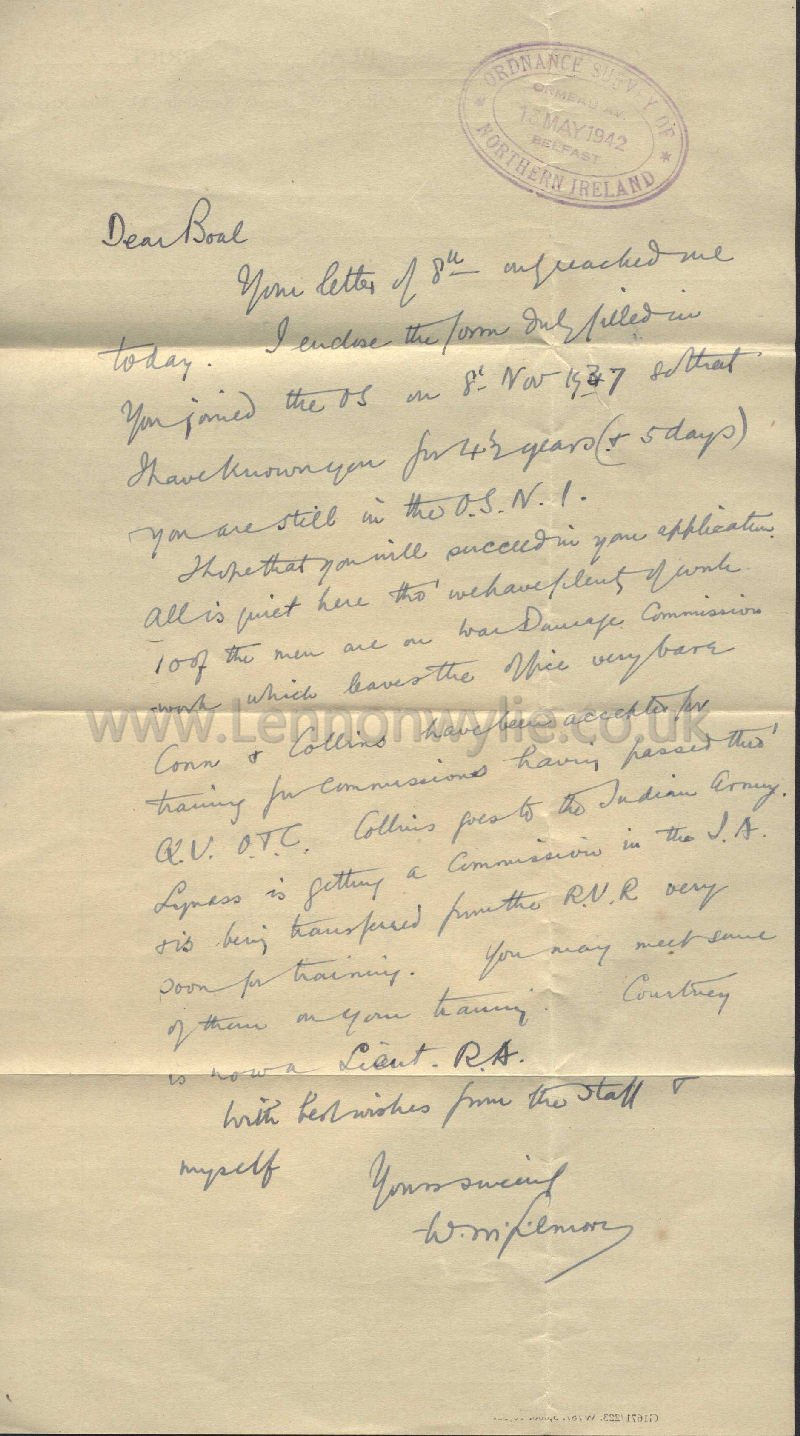 ORDNANCE SURVEY OF
ORMEAU AV.
13 MAY 1942
BELFAST
NORTHERN IRELAND
Dear Boal
Your letter of 8th only reached me
today. I enclose the form duly filled in
You joined the OS on 8th Nov 1937 so that
I have known you for 4½ years (+ 5 days)
you are still in the O.S.N.I.
I hope that you will succeed in your application
All is quiet here tho' we have plenty of work
10 of the men are on War Damage Commission
work which leaves the office very bare
www.Lennonwylie.co.uk
Conn & Collins have been accepted for
training for Commissions having passed thro'
Q.U. O.T.C. Collins goes to the Indian Army.
Lyness is getting a Commission in the I.A.
& is being transferred from the R.U.R very
soon for training. You may meet some
of them on your training. Courtney
is now a Lieut. R.A.
With best wishes from the staff &
myself
Yours sincerely
W.
G1671/223.